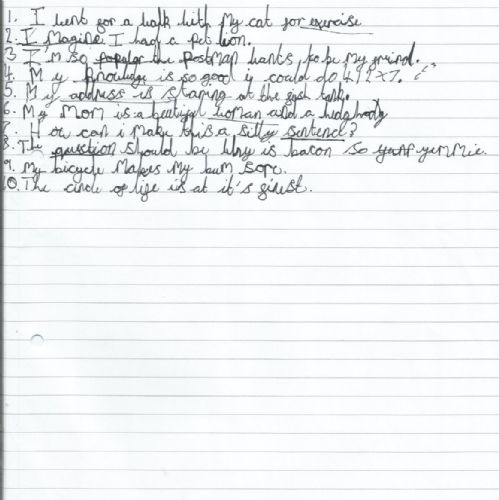 1. I went for a walk with my cat for exercise
2. I Magine I had a pet lion.
3 I'm so popular the postman wants, to be my friend.
4. My knowledge is so good i could do 412x7.
5. My address is staring at the fish tank.
6. My Mom is a beetiful woman and a
7. How can i make this a silly sentence?
8. The question should be why is bacon so yummie.
9. My bicycle makes my bum sore.
10. The circle of life is at it's finest.